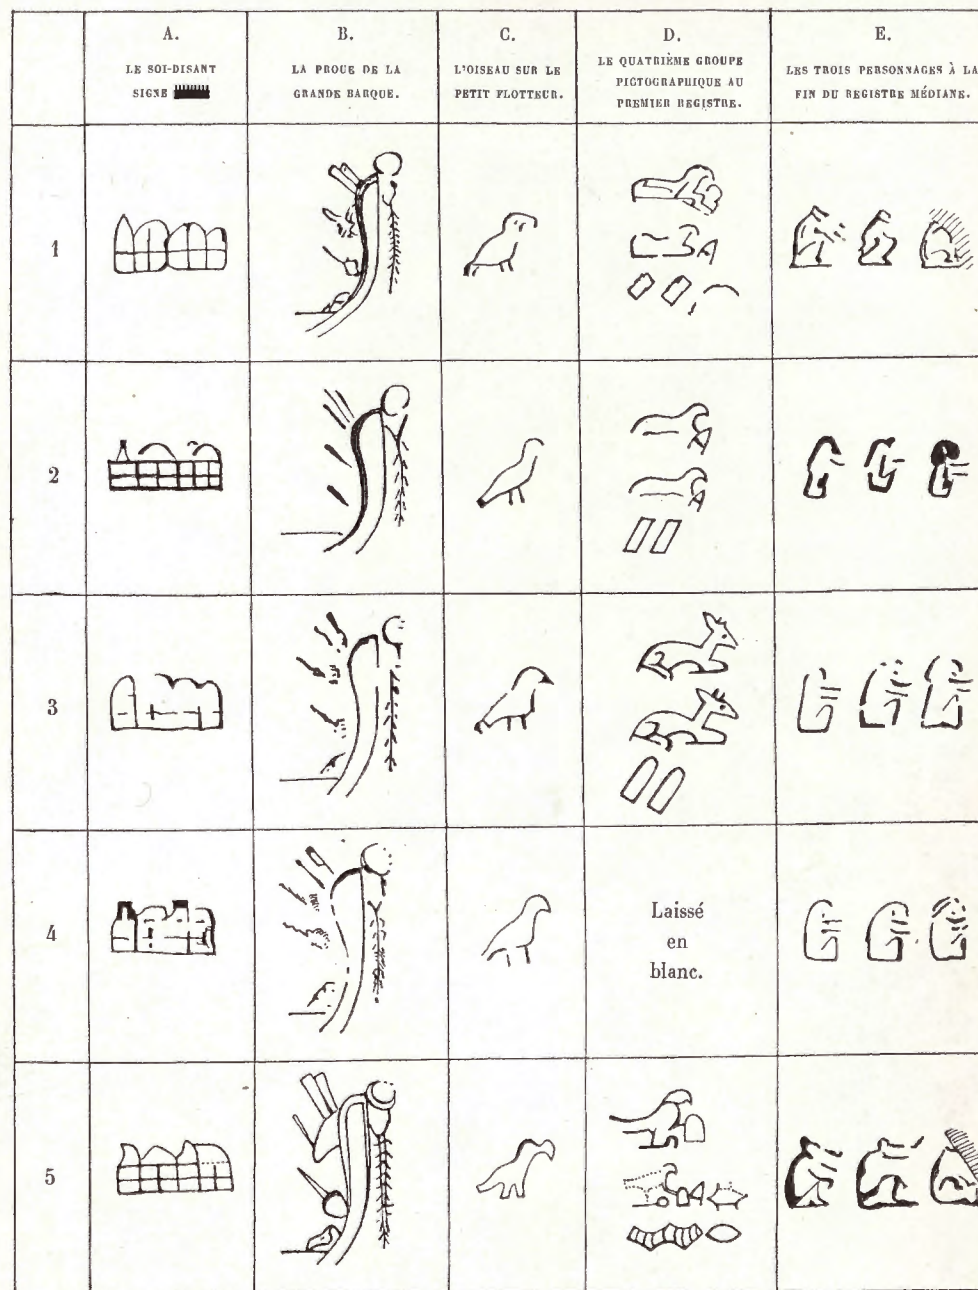 A.
LE SOI-DISANT
SIGNE
B.
LA PROUE DE LA
GRANDE BARQUE.
C.
L'OISEAU SUR LE
PETIT FLOTTEUR.
D.
LE QUATRIÈME GROUPE
PICTOGRAPHIQUE AU
PREMIER REGISTRE.
E.
LES TROIS PERSONNAGES À LA
FIN DU REGISTRE MÉDIANE.
1
2
3
4
Laissé
en
blanc.
5